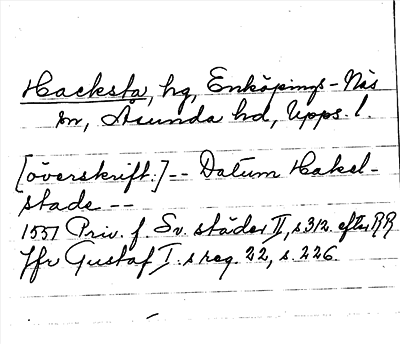 Hacksta, hg, Enköpings-Näs
sn, Åsunda hd, Upps. l.
[överskrift:] -- Datum Hakel-
stade --
1551 Priv. f. Sv. städer II, s 312. efter RR
Jfr Gustaf I:s reg. 22, s. 226.